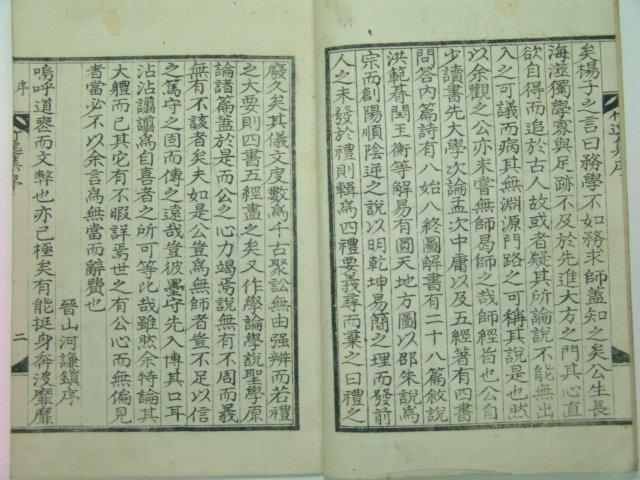 矣楊子之言曰務學不如務求師盖知之矣公生長
海澨獨學寡與足跡不及於先進大方之門其心直
欲自得而追於古人故或者疑其所論說不能無出
入之可議而病其無淵源門路之可稱其說是也然
以余觀之公亦未嘗無師曷師之哉師經旨也公自
少讀書先大學次論孟次中庸以及五經著有四書
問答內篇詩有八始八終圖解書有二十八篇敘說
洪範朞閏王衡等解易有圓天地方圖以邵朱說爲
宗而創陽順陰逆之說以明乾坤易簡之理而發前
人之未發於禮則輯爲四禮要義尋而棄之曰禮之
廢久矣其儀文度數爲千古聚訟無由强辨而若禮
之大要則四書五經盡之矣又作學論學說聖學原
論諸篇蓋於是而公之心力竭焉說無有不周而義
無有不該者矣夫如是公豈爲無師者豈不足以信
之篤守之固而傳之遠哉豈彼墨守先入博其口耳
沾沾謭謭爲自喜者之所可等比哉雖然余特論其
大軆而已其它有不暇詳焉世之有公心而無偏見
者當必不以余言爲無當而辭費也
晉山河謙鎭序
嗚呼道喪而文弊也亦已極矣有能挺身奔波靡靡
序
二